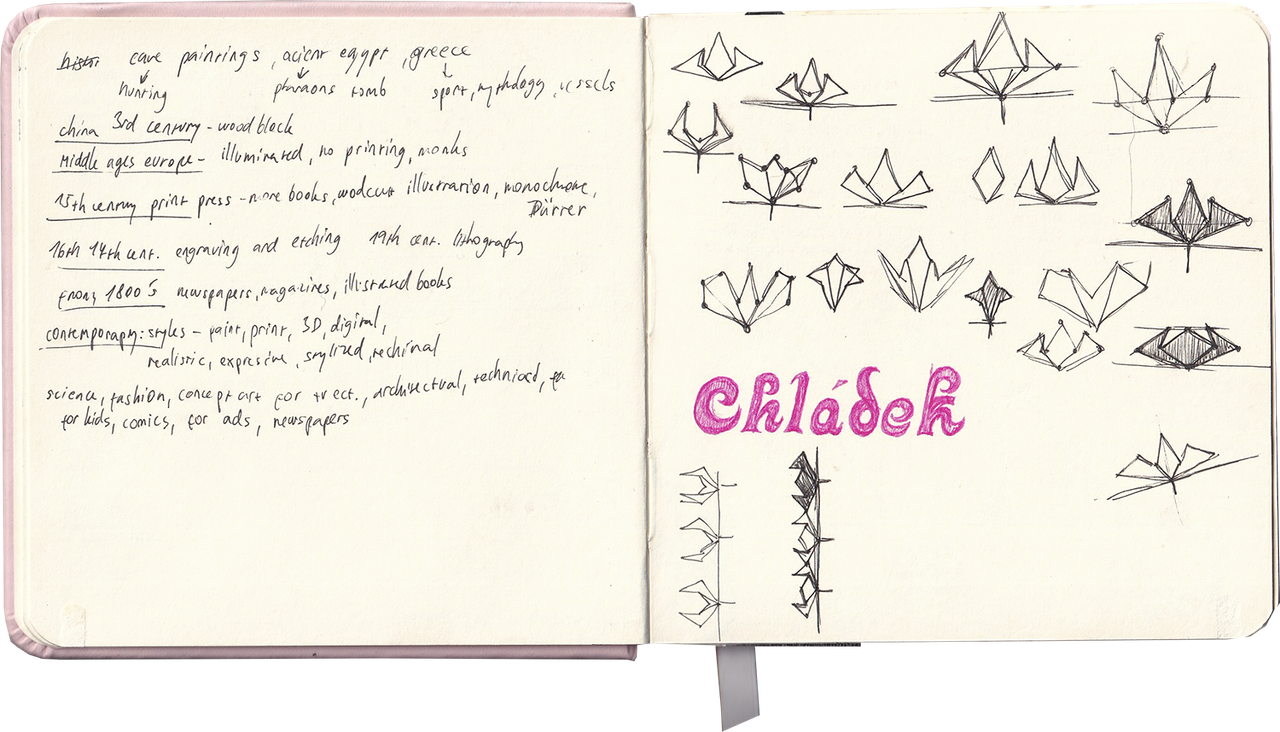 histor cave paintings, acient egypt, greece
hunting pharaons tomb sport, mythology, vessels
china 3rd century - wood block
Middle ages europe - illuminated, no printing, monks
15th century print press - more books, wodcut illustration, monochrome,
Dürrer
16th 17th cent. engraving and etching 19th cent. lithography
from 1800's newspapers, magazines, illustrated books
contemporary: styles - paint, print, 3D, digital,
realistic, expresive, stylized, technical
science, fashion, concept art for architectual, technical,
for kids, comics, for ads, newspapers
Chládek